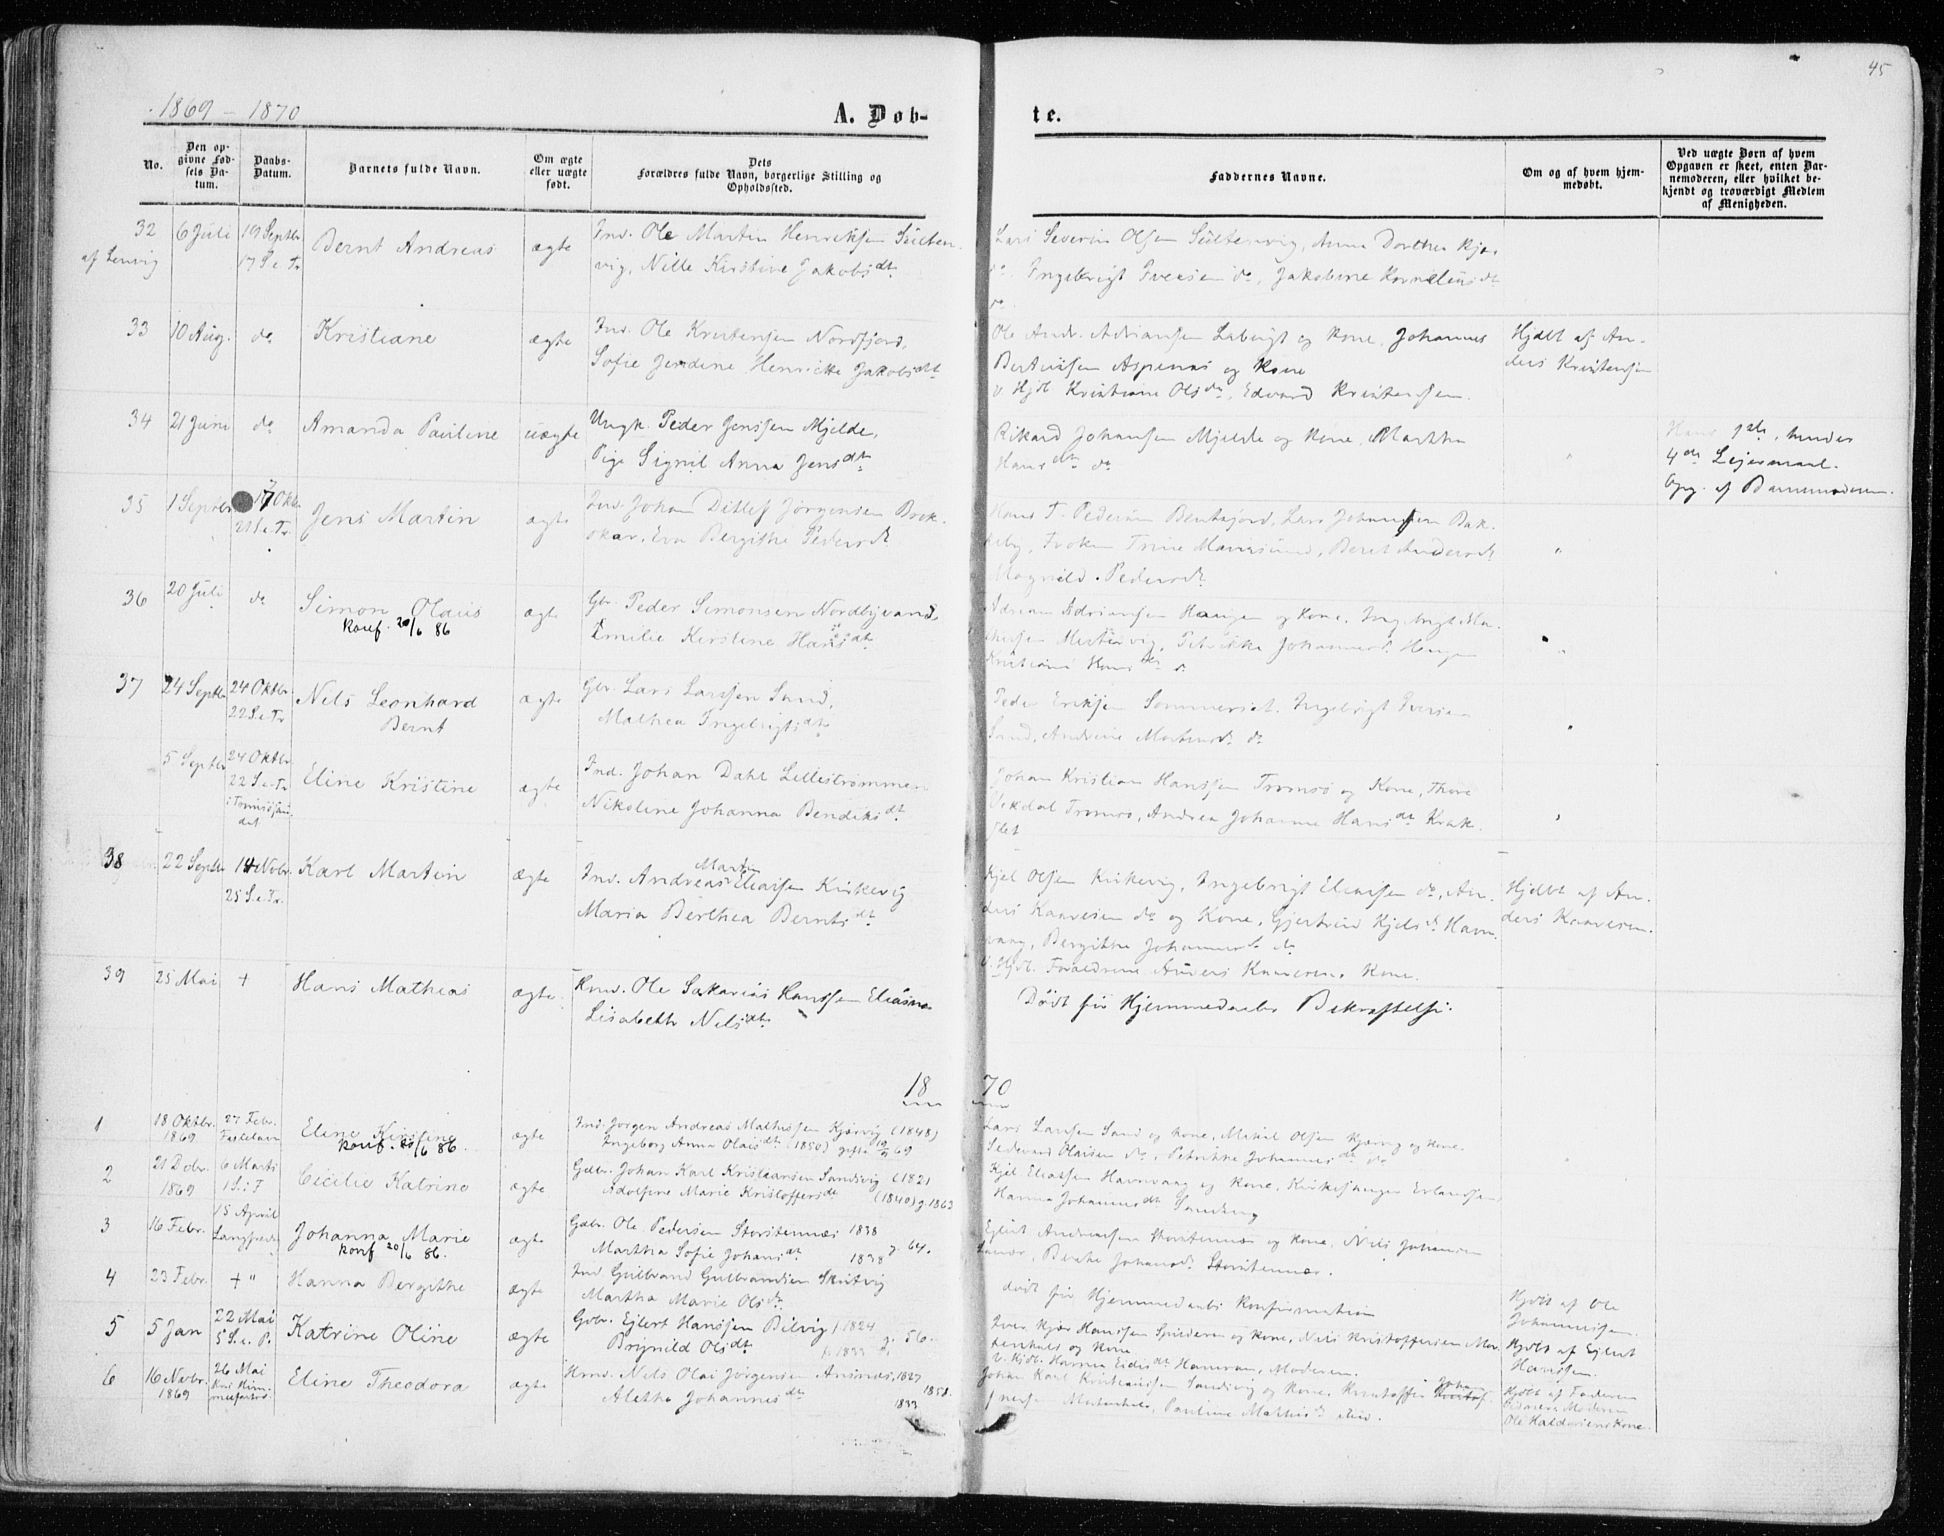 45
1869 - 1870
A. Døb-
te.
No.
Den op-
givne Fød-
sels Da-
tum.
Daabs-
Datum.
Barnets fulde Navn.
Om ægte
eller uægte
født.
Dets
Forældres fulde Navn, borgerlige Stilling og
Opholdssted.
Faddernes Navne.
Om og af hvem hjem-
medøbt.
Ved uægte Børn af hvem
Opgaven er skeet, enten Bar-
nemoderen, eller hvilket be-
kjendt og troværdigt Medlem
af Menigheden.
32
af Lenvig
6 Juli
19 Septbr
17 S. e. Tr
Bernt Andreas
ægte
Ind. Ole Martin Henriksen Sulten-
vig, Nille Kirstine Jakobsdt.
Lars Severin Olsen Sultenvig, Anna Dorthea
do. Ingebrigt Iversen do, Jakobine Korneliusdt
do
33
10 Aug.
do
Kristiane
ægte
Ind. Ole Kristensen Nordfjord,
Sofie Jendine Henriette Jakobsdt
Ole Andr. Adriansen Laberigt og Kone, Johannes
Berteussen Aspenes og Kone
v. Hjd. Kristiane Olsdt, Edvard Kristensen.
Hjdbt af An-
ders Kristensen
34
21 Juni
do
Amanda Pauline
uægte
Ungk. Peder Jenssen Mjelde,
Pige Signil Anna Jensdt
Rikard Johansen Mjelde og Kone, Martha
Hansdt do
Hans 1ste, hendes
4de Leiermaal.
Opg. af Barnemoderen.
35
1 Septbr
17 Oktbr
21 S. e. Tr.
Jens Martin
ægte
Ind. Johan Ditlef Jörgensen Brok-
skar, Eva Bergithe Pedersdt
Hans T. Pedersen Bentsjord, Lars Johannsen Bak-
keby, Frøken Trine Mariesund, Beret Andersdt
Ragnild Pedersdt.
"
36
20 Juli
do
Simon Olaus
Konf. 20/6 86
ægte
Gbr. Peder Simonsen Nordbyvand
Emilie Kirstine Hansdt.
Adrian Adriansen Haugen og Kone, Ingebrigt Ma-
thisen Mestervig, Petrikke Johannesdt. Haugen
Kristiane Hansdt do.
"
37
24 Septbr
24 Oktbr
22 S. e. Tr
Nils Leonhard
Bernt
ægte
Gbr. Lars Larssen Sand,
Mathea Ingebrigtsdt
Peder Eriksen Sommerset, Ingebrigt Iversen
Sand, Andrine Mortensdt do
"
5 Septbr
24 Oktbr
22 S. e. Tr
i Tromsøsun-
det
Eline Kristine
ægte
Ind. Johan Dahl Lillestrømmen
Nikoline Johanna Bendiksdt.
Johan Kristian Hanssen Tromsø og Kone, Thore
Tromsø, Andrea Johanne Hansdt Krak-
slet
"
38
22 Septbr
14 Novbr.
25 S. e. Tr.
Karl Martin
ægte
Martin
Ind. Andreas Eliassen Kirkevig
Maria Berthea Berntsdt
Kjel Olsen Kirkevig, Ingebrigt Eliassen do, An-
ders Knavesen do og Kone, Gjertrud Kjelsdt Havn-
vaag, Bergithe Johannesdt do
v. Hjd. Forældrene Anders Knavesens Kone.
Hjdbt af An-
ders Knavesen.
39
25 Mai
+
Hans Mathias
ægte
Hmd. Ole Sakarias Hanssen Eliasnes
Lisabeth Nilsdt.
Dødt før Hjemmedaabs Bekræftelse.
1870
1
18 Oktbr.
1869
27 Febr.
Fastelavn
Eline Kirstine
Konf. 20/6 86.
ægte
Ind. Jörgen Andreas Mathissen Kjörvig (1848)
Ingeborg Anna Olausdt (1850) gifte 69
Lars Larssen Sand og Kone, Mikal Olsen Kjørvig og Kone.
Sedevard Olaisen do, Petrikke Johannesdt do
2
21 Dcbr.
1869
6 Marts
1 S. i F
Cicilie Katrine
ægte
Gdbr. Johan Karl Kristiansen Sandvig (1821
Adolfine Marie Kristoffersdt (1840) g. 1863
Kjel Eliassen Havnvaag og Kone, Kirkesanger Erlandsen,
Hanna Johannesdt Sandvig
3
16 Febr.
15 April
Langfreda
Johanna Marie
Konf 20/6 86.
ægte
Gdbr. Ole Pedersen Storstennæs 1838
Martha Sofie Johansdt 1838 g. 64.
Ejlert Andreassen Storstennæs og Kone, Nils Johansen
Berthe Johansdt. Storstennæs.
4
23 Febr.
+ "
Hanna Bergithe
ægte
Ind Gulbrand Gulbrandsen Skutvig
Martha Marie Olsdt.
dødt før Hjemmedaabs Konfirmation
Hjdbt af Ole
Johannessen.
5
5 Jan
22 Mai
5 S. e. P.
Katrine Oline
ægte
Gdbr. Ejlert Hanssen Bilvig 1824 g. 56.
Brynild Olsdt. 1833
Iver Kjær Hanssen Spilderen og Kone, Nils Kristoffersen Mar-
tenhals og Kone
v. Hjdb. Hanna Eidesdt Hanevan, Moderen.
Hjdbt af Ejlert
Hanssen.
6
16 Novbr.
1869
26 Mai
Kris Him-
melfartsd.
Eline Theodora
ægte
Hmd. Nils Olai Jörgensen Ansnes, 1827
Aletha Johannesdt 1833
1858
Johan Karl Kristiansen Sandvig og Kone, Kristoffer Johan
Pauline Mathisdt
Hjdbt af Faderen
Moderen
Ole Haldorsens Kone.